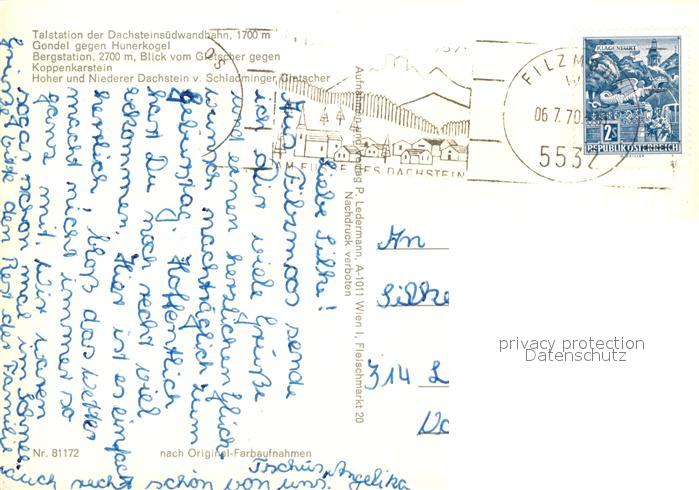 Talstation der Dachsteinsüdwandbahn, 1700 m
Gondel gegen Hunerkogel
Bergstation, 2700 m, Blick vom Gletscher gegen
Koppenkarstein
Hoher und Niederer Dachstein v. Schladminger Gletscher
Liebe Silke!
Aus Filzmoos sende
ich dir viele Grüße
und einen herzlichen Glück-
wunsch nachträglich zum
Geburtstag. Hoffentlich
hast Du noch recht viel
bekommen. Hier ist es einfach
herrlich, bloß das Wetter
macht nicht immer so
ganz mit. Wir waren
sogar schon mal im Schnee.
Grüße bitte den Rest der Familie
auch recht schön von uns.
Tschüs, Angelika
Nr. 81172
nach Original-Farbaufnahmen
Aufnahmen und Verlag P. Ledermann, A-1011 Wien I, Fleischmarkt 20
Nachdruck verboten
AM FUSSE DES DACHSTEIN
FILZMOOS
06.7.70
5532
KLAGENFURT
2S
REPUBLIK ÖSTERREICH
An
Silke
314 L
privacy protection
Datenschutz